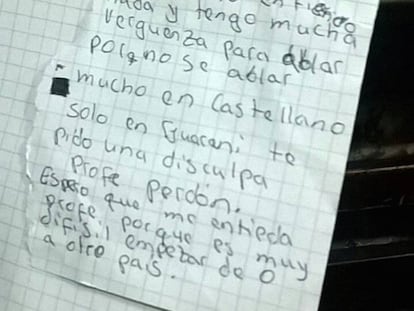 nada y tengo mucha
verguenza para ablar
porq no se ablar
mucho en Castellano
solo en Guarani te
pido una disculpa
Profe Perdón.
Espero que me entieda
Profe, porque es muy
difisil empezar de 0
a otro pais.